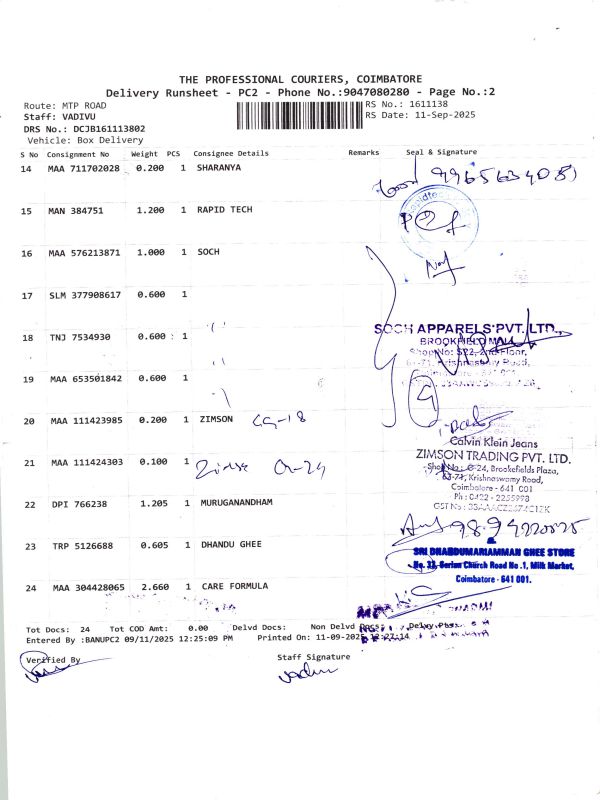 THE PROFESSIONAL COURIERS, COIMBATORE
Delivery Runsheet - PC2 - Phone No.:9047080280 - Page No.:2
Route: MTP ROAD
RS No.: 1611138
Staff: VADIVU
RS Date: 11-Sep-2025
DRS No.: DCJB161113802
Vehicle: Box Delivery
S No Consignment No Weight PCS Consignee Details Remarks Seal & Signature
14 MAA 711702028 0.200 1 SHARANYA
15 MAN 384751 1.200 1 RAPID TECH
16 MAA 576213871 1.000 1 SOCH
17 SLM 377908617 0.600 1
18 TNJ 7534930 0.600 1
SOCH APPARELS PVT. LTD.,
BROOKFIELD MALL
Shop No: S22, 2nd Floor,
Krishnaswamy Road,
19 MAA 653501842 0.600 1
20 MAA 111423985 0.200 1 ZIMSON CG-18
Calvin Klein Jeans
ZIMSON TRADING PVT. LTD.
21 MAA 111424303 0.100 1 Zimson
Shop No.: G-24, Brookefields Plaza,
67-71, Krishnaswamy Road,
Coimbatore - 641 001
Ph : 0422 - 2255998
22 DPI 766238 1.205 1 MURUGANANDHAM
23 TRP 5126688 0.605 1 DHANDU GHEE
SRI DHANDUMARIAMMAN GHEE STORE
Church Road No .1, Milk Market,
Coimbatore - 641 001.
24 MAA 304428065 2.660 1 CARE FORMULA
Tot Docs: 24 Tot COD Amt: 0.00 Delvd Docs: Non Delvd Docs:
Entered By :BANUPC2 09/11/2025 12:25:09 PM Printed On: 11-09-2025 12:27:14
Verified By
Staff Signature
vadivu